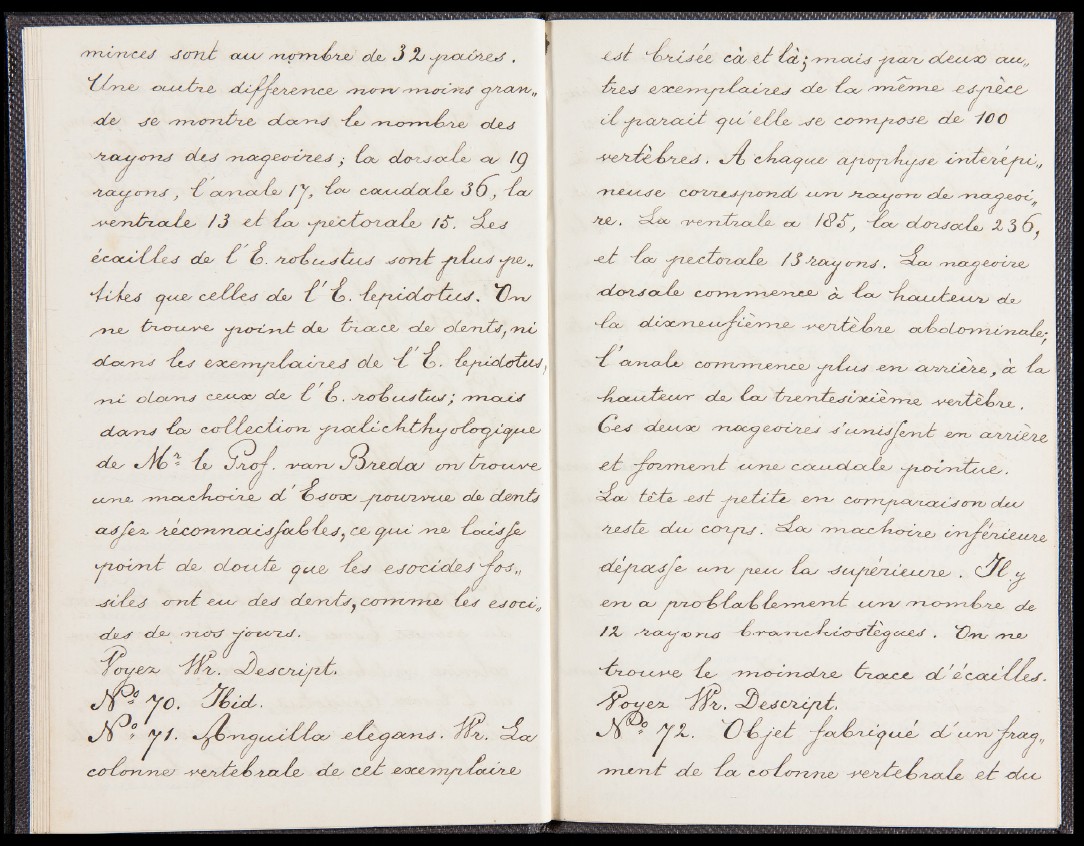 minces sont au nombre de 32 paires.
Une autre difference non moins gran„
de se montre dans le nombre des
rayons des nageoires; la dorsale a 19
rayons, l'anale 17, la caudale 36, la
ventrale 13 et la pectorale 15. Les
écailles de l'E. robustus sont plus pe„
tites que celles de l'E. lepidotus. On
ne trouve point de trace de dents, ni
dans les exemplaires de l'E. lepidotus,
ni dans ceux de l'E. robustus; mais
dans la collection palichthyologique
de Mr. le Prof. van Breda on trouve
une machoire d'Esox pourvue de dents
assez réconnaissables, ce qui ne laisse
point de doute que les esocides fos„
siles ont eu des dents, comme les esoci„
des de nos jours.
Voyez Wr. Descript.
No. 70. Ibid.
No. 71. Anguilla elegans. Wr. La
colonne vertebrale de cet exemplaire
est brisée cà et là; mais par deux au„
tres exemplaires de la même espèce
il parait qu'elle se compose de 100
vertèbres. A chaque apophyse interépi„
neuse correspond un rayon de nageoi„
re. La ventrale a 185, la dorsale 236,
et la pectorale 13 rayons. La nageoire
dorsale commence à la hauteur de
la dixneufième vertèbre abdominale;
l'anale commence plus en arrière, à la
hauteur de la trentesixième vertèbre.
Ces deux nageoires s'unissent en arrière
et forment une caudale pointue.
La tête est petite en comparaison du
reste du corps. La machoire inférieure
dépasse un peu la supérieure. Il y
en a problablement un nombre de
12 rayons branchiostègues. On ne
trouve le moindre trace d'écailles.
Voyez Wr. Descript.
No. 72. Objet fabriqué d'un frag„
ment de la colonne vertebrale et du